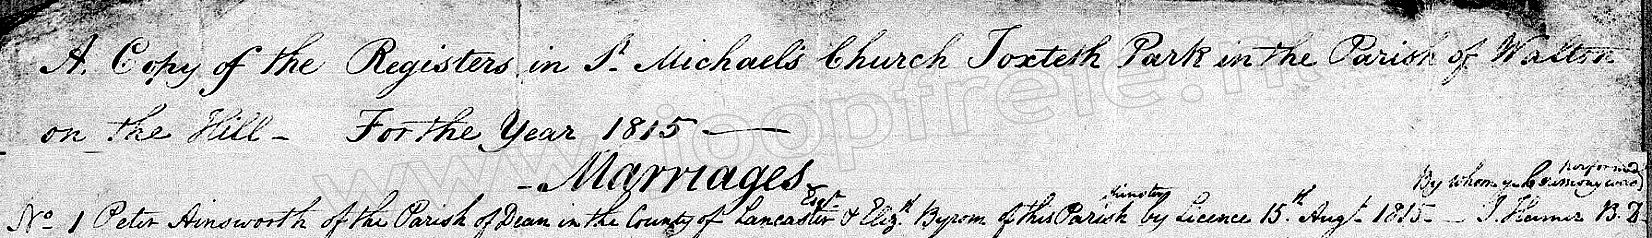 A. Copy of the Registers in St. Michael's Church Toxteth Park in the Parish of Walton
on the Hill - For the Year 1815 —
- Marriages -
By whom ye Ceremony was performed
No. 1 Peter Ainsworth Esqr. of the Parish of Dean in the County of Lancaster & Elizth. Byrom of this Parish Spinster by Licence 15th. Augt. 1815 — J. Hamer B.D.
www.jooptreie.nl